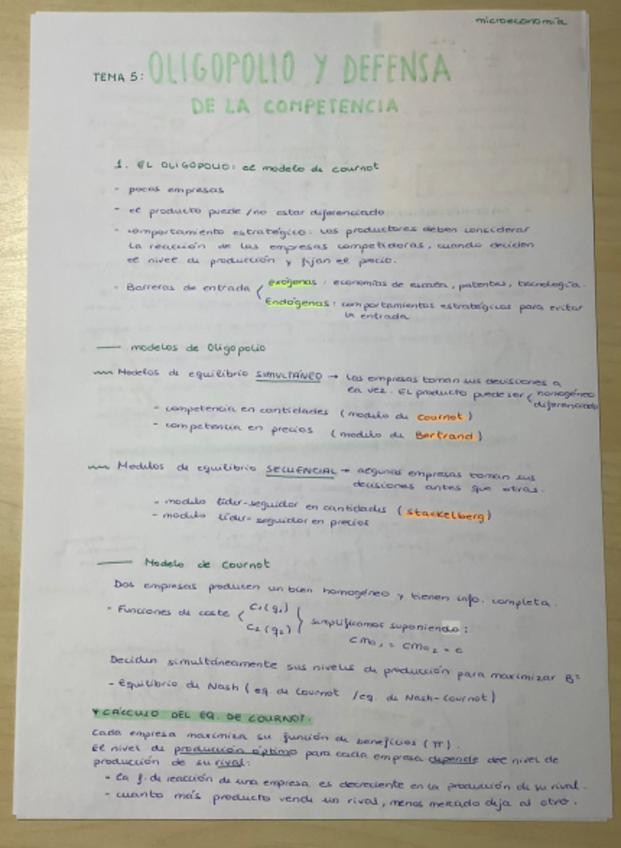 microeconomía
TEMA 5: OLIGOPOLIO Y DEFENSA
DE LA COMPETENCIA
1. EL OLIGOPOLIO: el modelo de cournot
- pocas empresas
- el producto puede /no estar diferenciado
- comportamiento estratégico: los productores deben considerar
la reacción de las empresas competidoras, cuando deciden
el nivel de producción y fijan el precio.
- Barreras de entrada exógenas: economías de escala, patentes, tecnología.
Endógenas: comportamientos estratégicos para evitar
la entrada
modelos de Oligopolio
Modelos de equilibrio SIMULTÁNEO → Las empresas toman sus decisiones a
la vez. El producto puede ser homogéneo
diferenciado
- competencia en cantidades (modelo de Cournot)
- competencia en precios (modelo de Bertrand)
Modelos de equilibrio SECUENCIAL → algunas empresas toman sus
decisiones antes que otras.
- modelo líder-seguidor en cantidades (Stackelberg)
- modelo líder-seguidor en precios
Modelo de Cournot
Dos empresas producen un bien homogéneo y tienen info. completa.
- Funciones de coste C₁(q₁)
C₂(q₂) simplificamos suponiendo:
CMa₁ = CMa₂ = c
Deciden simultáneamente sus niveles de producción para maximizar Bº
- Equilibrio de Nash (eq. de Cournot /eq. de Nash-Cournot)
CÁLCULO DEL EQ. DE COURNOT:
Cada empresa maximiza su función de beneficios (π).
El nivel de producción óptimo para cada empresa depende del nivel de
producción de su rival:
- La f. de reacción de una empresa es decreciente en la producción de su rival.
- cuanto más producto vende un rival, menos mercado deja al otro.